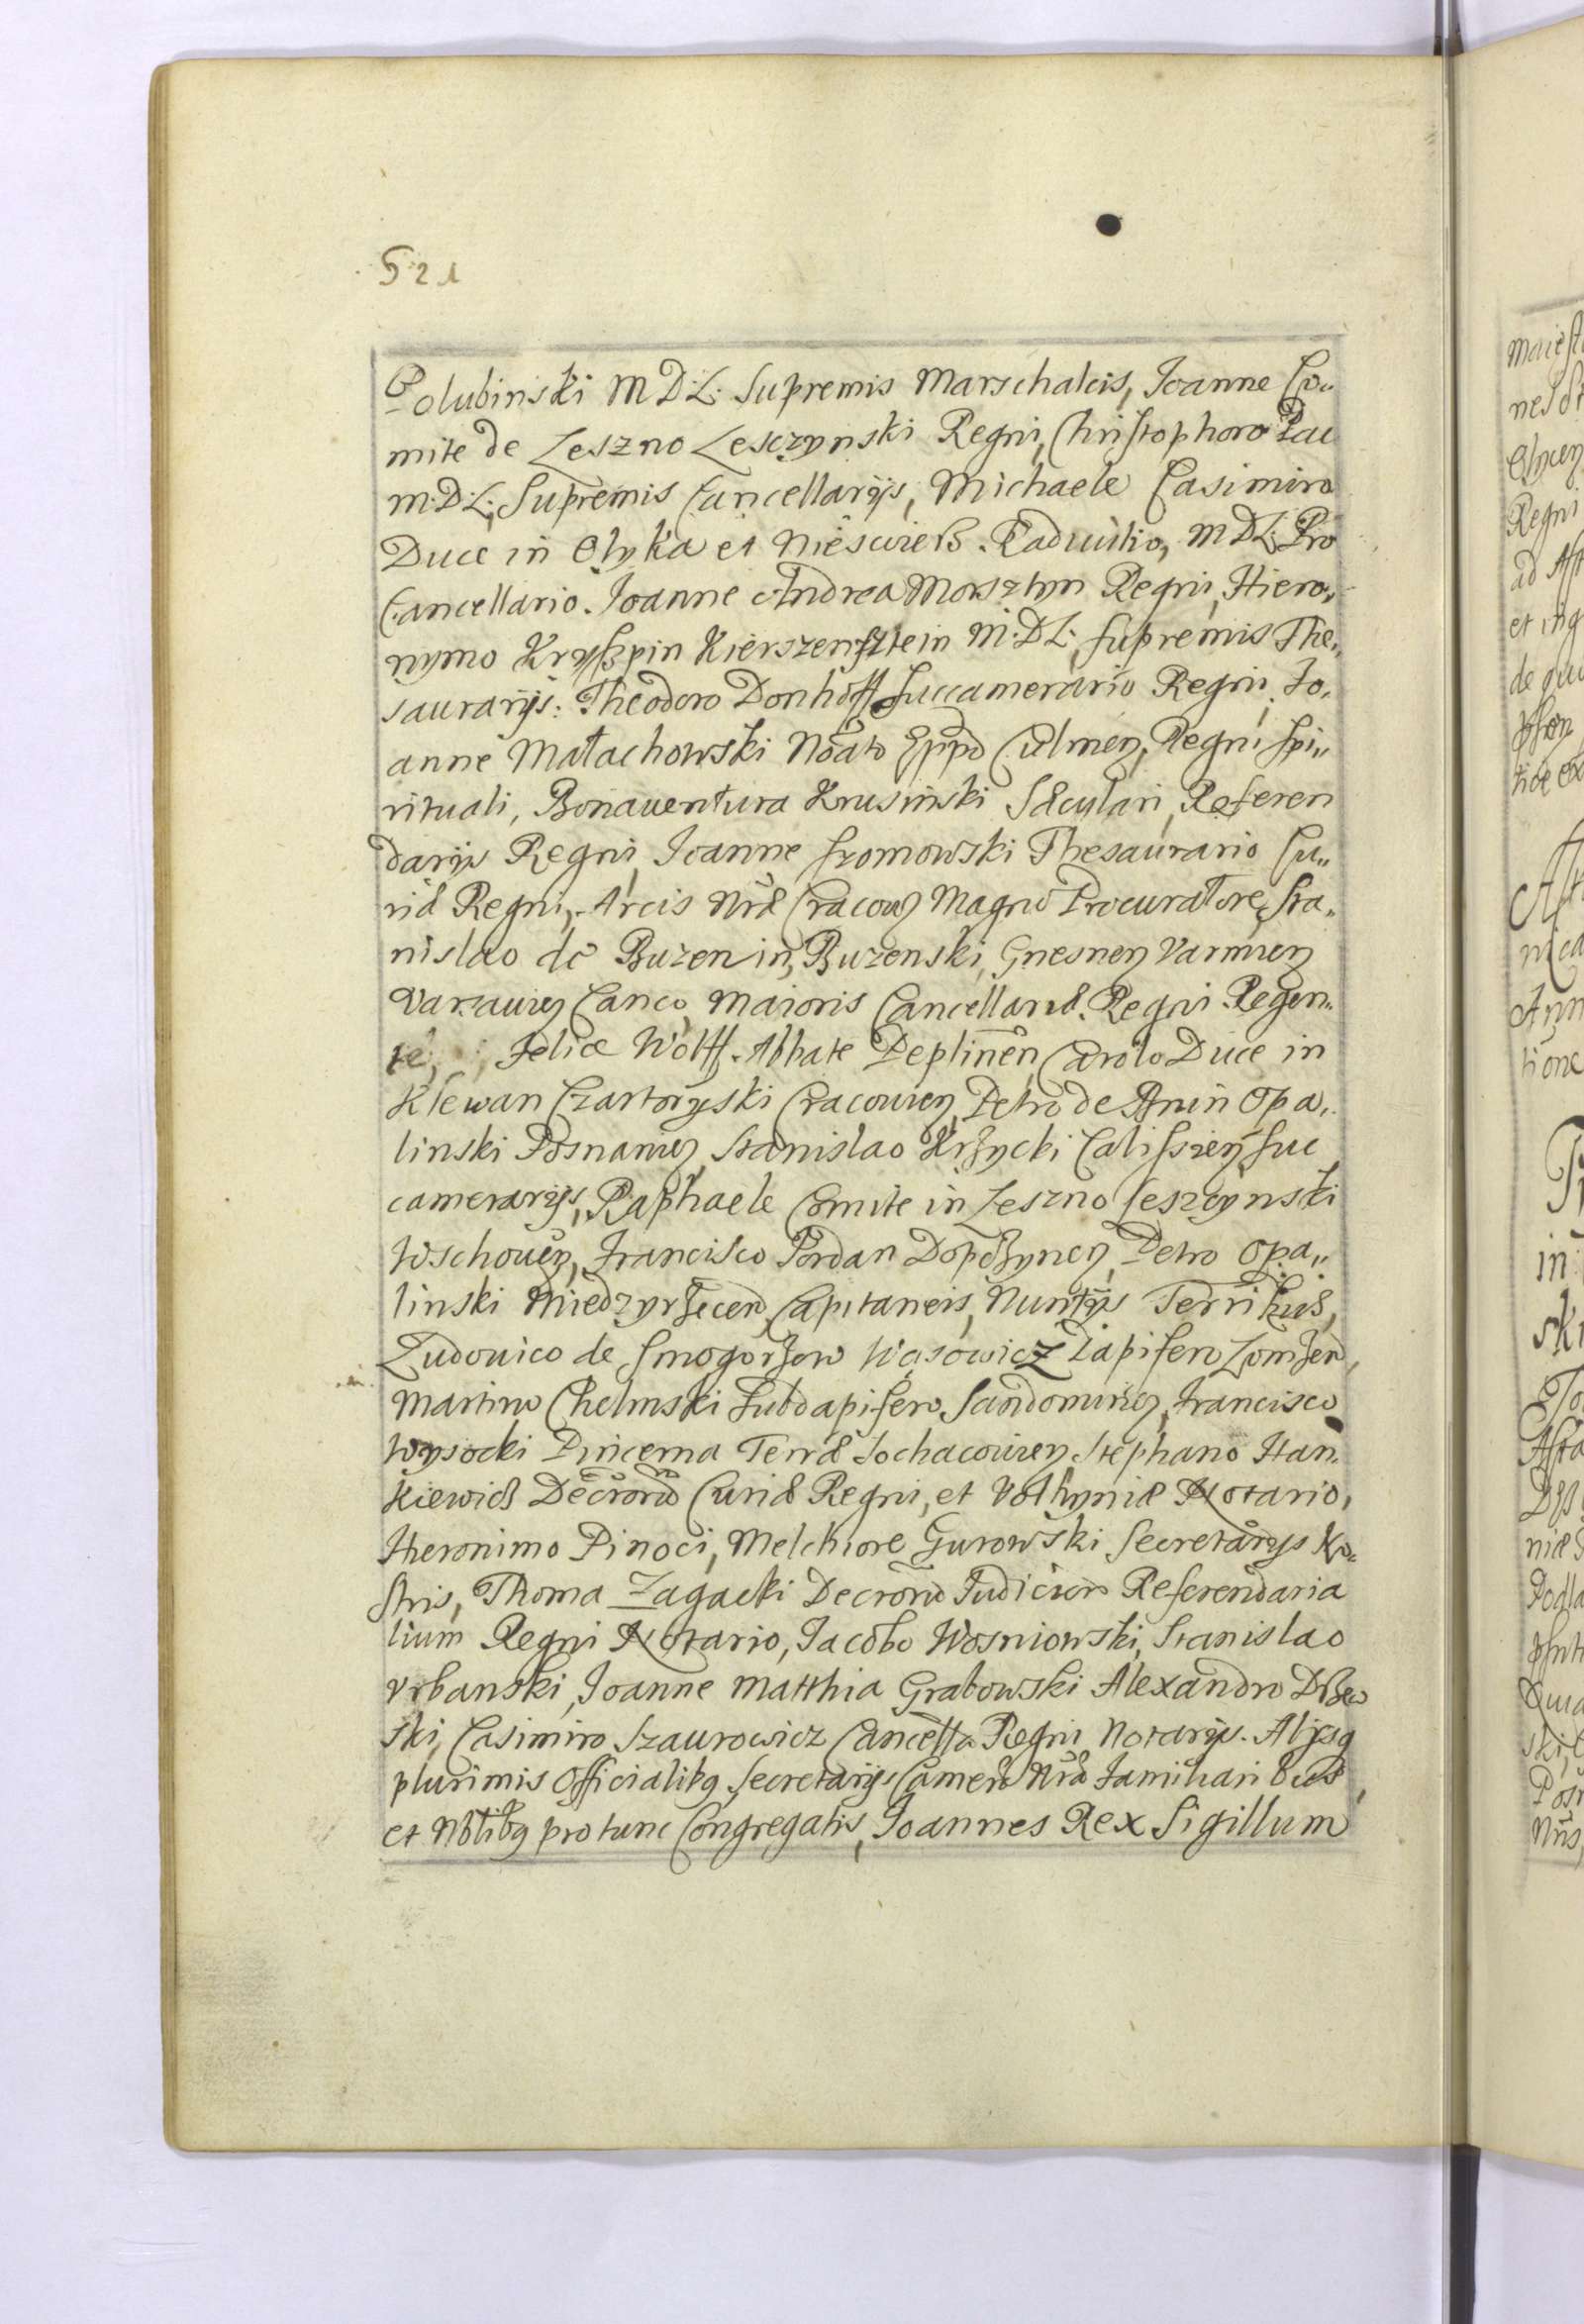 521
Polubinski M.D.L. Supremis Marschalcis, Joanne Co„
mite de Leszno Lesczynski Regni, Christophoro Pac
M.D.L. Supremis Cancellarijs, Michaele Casimiro
Duce in Olyka et Nieswiesz Radziwilio, M.D.L. Pro
Cancellario. Joanne Andrea Morsztyn Regni, Hiero„
nymo Kryszpin Kierszensztein M.D.L. supremis The„
saurarijs: Theodoro Donhoff Succamerario Regni, Jo„
anne Małachowski Noato Eppo Culmen, Regni Spi„
rituali, Bonaventura Krusinski Sæculari, Referen
darijs Regni, Joanne Szomowski Thesaurario Cu„
riæ Regni, Arcis Nræ Cracoviẽ Magno Procuratore, Sta„
nislao de Buzenin, Buzenski, Gnesnen Varmien
Varsavien Canco, Maioris Cancellariæ Regni Regen„
te, Felice Wolff Abbate Peplinen, Carolo Duce in
Klewan Czartoryski Cracovien, Petro de Bnin Opa„
linski Posnanien, Stanislao Krzycki Calissien Suc
camerarijs, Raphaele Comite in Leszno Leszczynski
Wschoven, Francisco Jordan Dopczynen, Petro Opa„
linski Miedzyrzecen, Capitaneis, Nuntijs Terribus,
Ludovico de Smogorzow Wąsowicz Dapifero Łomzen,
Martino Chelmski Subdapifero Sandomirien, Francisco
Wysocki Pincerna Terræ Sochacovien, Stephano Han„
kiewicz Decrorum Curiæ Regni, et Volhyniæ Notario,
Hieronimo Pinoci, Melchiore Gurowski Secretarijs No„
stris, Thoma Zagacki Decrorum Judicior Referendaria
lium Regni Notario, Jacobo Wosniowski, Stanislao
Urbanski, Joanne Matthia Grabowski Alexandro DBew
ski, Casimiro Szaurowicz Cancella Regni Notarijs. Alijsq
plurimis Officialibq Secretarijs Cameræ Nræ Familiaribus
et Nblibq pro tunc Congregatis, Joannes Rex Sigillum